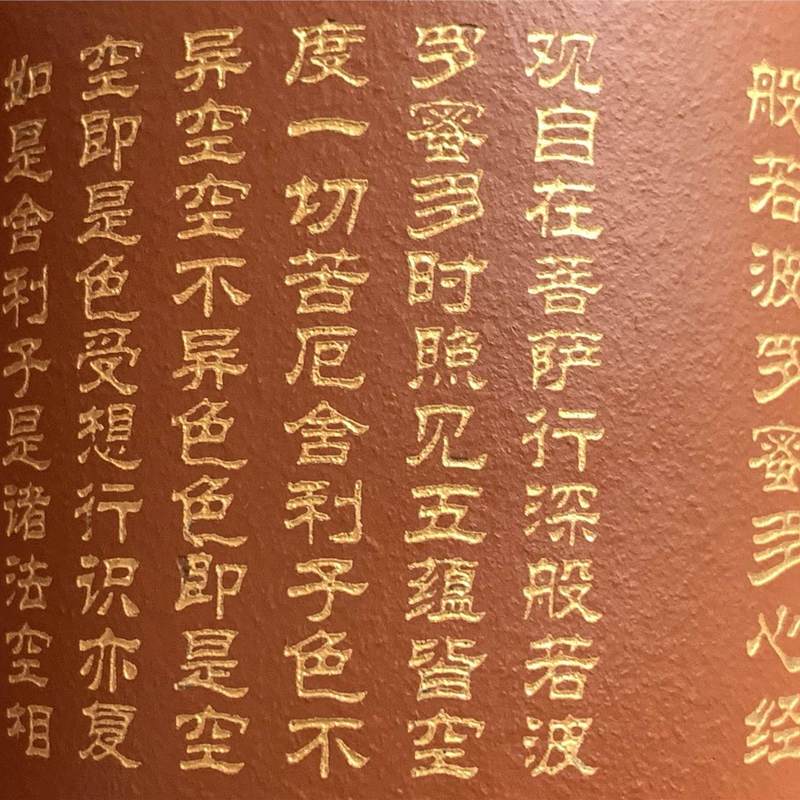 般若波罗蜜多心经
观自在菩萨行深般若波
罗蜜多时照见五蕴皆空
度一切苦厄舍利子色不
异空空不异色色即是空
空即是色受想行识亦复
如是舍利子是诸法空相